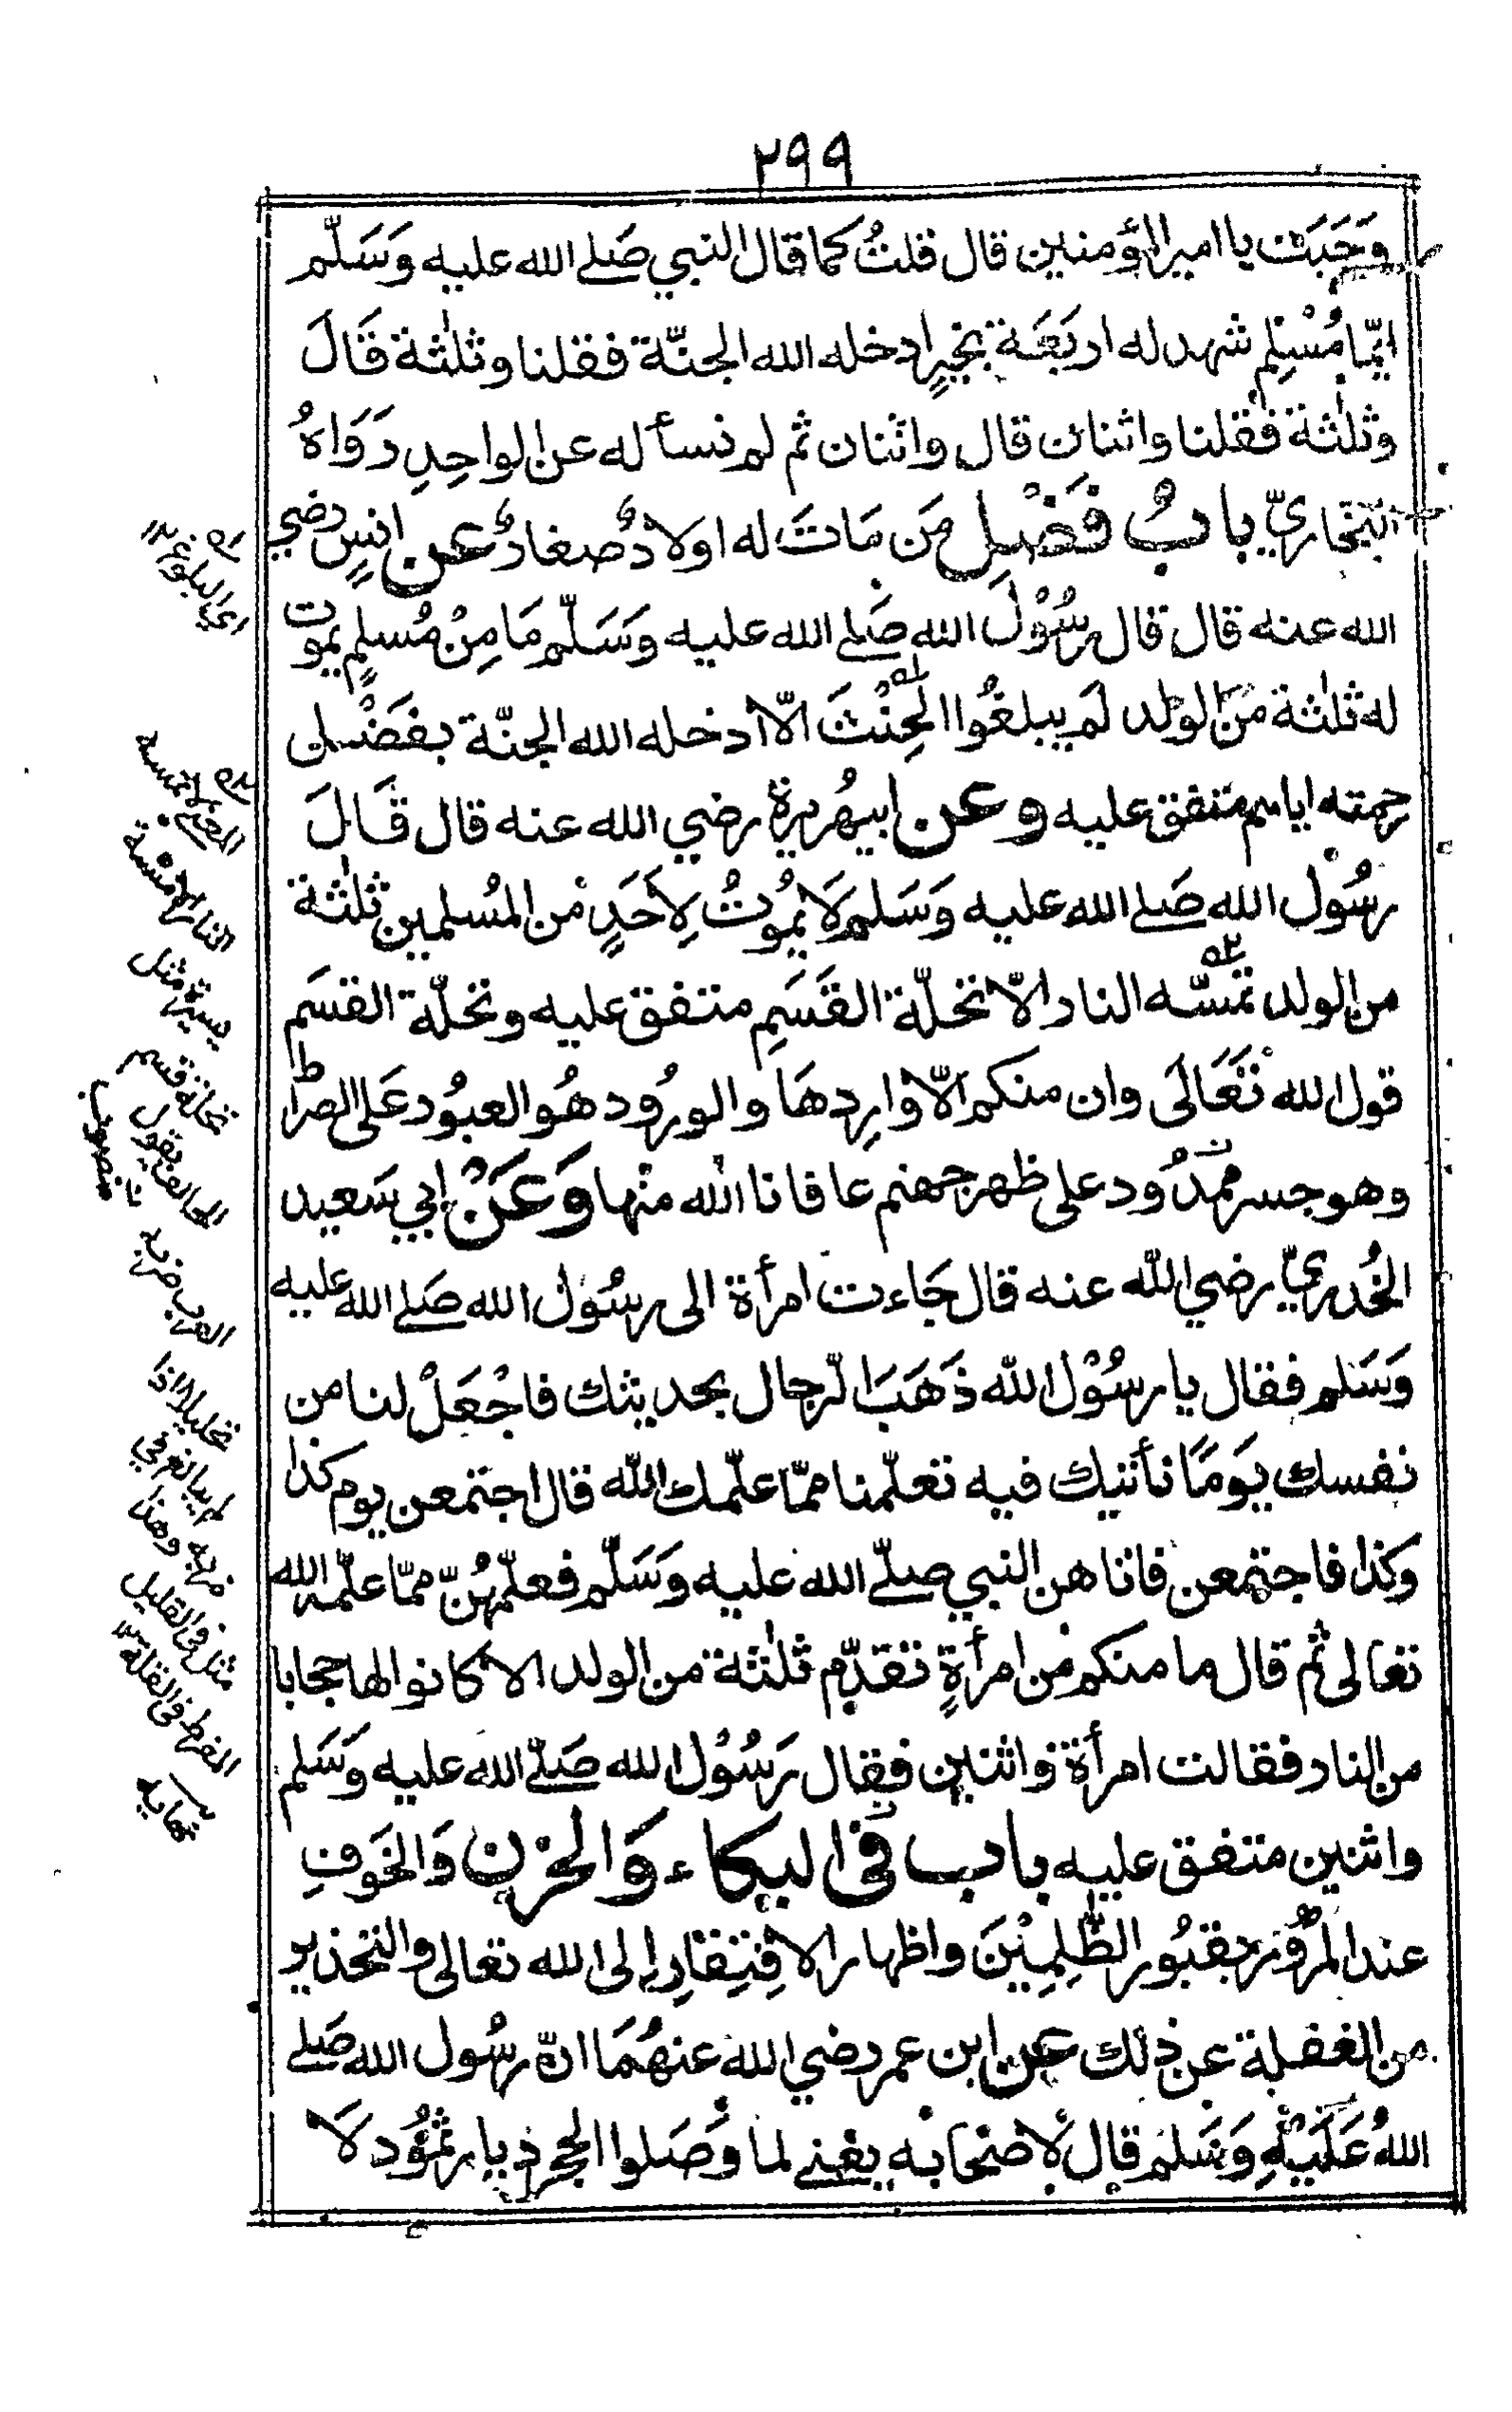 ٢٩٩
وَجَبَتْ يا امير المؤمنين قال قلتُ كما قال النبي صَلى الله عليه وَسَلّم
ايّما مُسْلِم شهد له اربَعَة بخيرٍ ادخله الله الجنّة فقلنا وثلٰثة قَالَ
وثلٰثة فقلنا واثنان قال واثنان ثم لم نسأله عن الواحِدِ رَوَاهُ
البخاريّ بابُ فَضْلِ مَن مَاتَ له اولادٌ صغارٌ عن انسٍ رضي
الله عنه قال قال رسُوْل الله صَلى الله عليه وَسَلّم مَا مِنْ مُسلمٍ يموت
له ثلٰثة مَن الولد لم يبلغُوا الحِنْثَ الّا ادخله الله الجنّة بفَضْل
رحمته اياهم متفق عليه وعن ابي هُريرة رضي الله عنه قال قَالَ
رسُوْل الله صَلى الله عليه وَسَلم لَا يمُوْتُ لِأحَدٍ من المُسلمين ثلٰثة
من الولد تمسّه النار الّا تحلّة القَسَمِ متفق عليه وتحلّة القسَم
قول الله تَعَالَى وان منكم الّا وارِدهَا والورُود هُو العبُور عَلى الصراط
وهو جسر ممدُود على ظهر جهنم عافانا الله منْها وَعَنْ ابي سَعيد
الخُدريّ رضي الله عنه قال جَاءت امرأة الى رسُوْل الله صَلى الله عليه
وَسَلم فقال يا رسُوْل الله ذَهَبَ الرّجال بحديثك فاجْعَلْ لنا من
نفسك يَومًا نأتيك فيه تعلّمنا ممّا علّمك الله قال اجتمعن يوم كذا
وكذا فاجتمعن فاتاهن النبي صلّى الله عليه وَسَلّم فعلّمهُنّ ممّا علّمه الله
تعالى ثم قال ما منكم من امرأةٍ تقدّم ثلٰثة من الولد الا كانوا لها حجابا
من النار فقالت امرأة واثنين فقال رَسُوْل الله صَلّى الله عليه وَسَلم
واثنين متفق عليه باب في البكاء وَالحزن وَالخَوفِ
عند المرُوْر بقبُور الظّٰلِمِيْنَ واظهار الافتِقارِ الى الله تعالى والتحذير
من الغفلة عن ذٰلك عن ابن عمر رضي الله عنهُمَا انّ رسُول الله صَلى
اللهُ عَلَيْهِ وَسَلم قال لِاصْحَابه يعني لما وَصَلوا الحجر ديار ثمُوْد لَا
اي البلوغ
تحلة قسم
العرب ضربه
ضربه وهذا
مثل في القليل
المفرط في القلة
نهايه